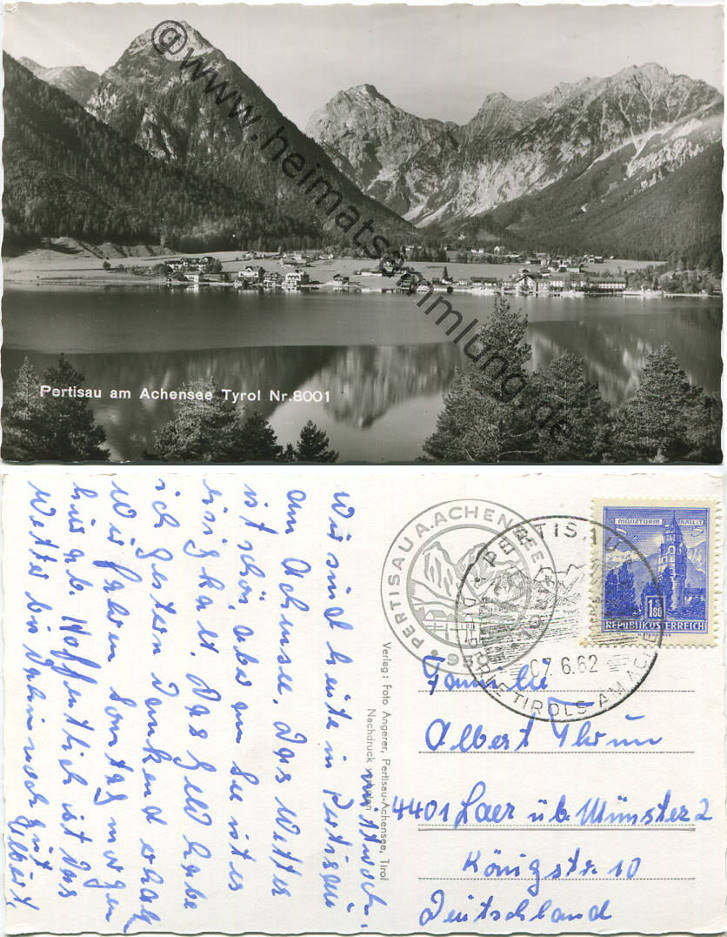 © www.heimatsammlung.de
Pertisau am Achensee Tyrol Nr.8001
Mittwoch.
Wir sind heute in Pertisau
am Achensee. Das Wetter
ist schön, aber am See ist es
kalt. Das Geld habe
ich gestern dankend erhalten
Wir fahren Sonntag morgen
hier ab. Hoffentlich ist das
Wetter bis dahin noch gut
Verlag: Foto Angerer, Pertisau-Achensee, Tirol
Nachdruck verboten
PERTISAU A. ACHENSEE
• 950
PERTISAU
07. 6.62
TIROLS AM
MÜNZTURM HALL
1.80
REPUBLIK ÖSTERREICH
Familie
Albert Thrun
4401 Laer üb. Münster 2
Königstr. 10
Deutschland